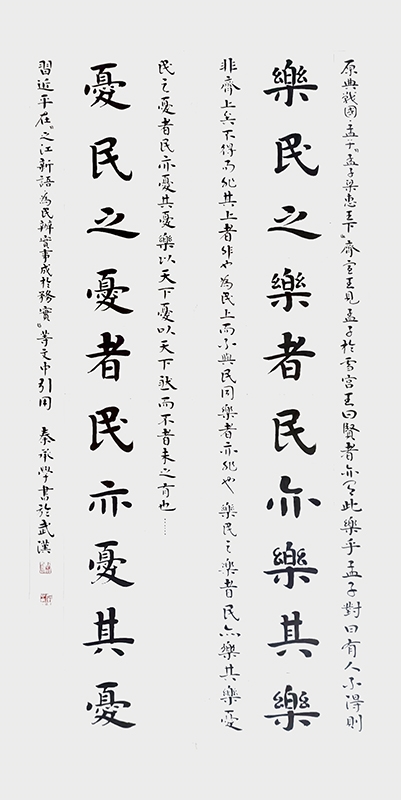 原典戰國·孟子“孟子梁惠王下”齊宣王見孟子於雪宮王曰賢者亦有此樂乎孟子對曰有人不得則
樂民之樂者民亦樂其樂
非齊上矣不得而非其上者非也為民上而不與民同樂者亦非也 樂民之樂者民亦樂其樂憂
民之憂者民亦憂其憂樂以天下憂以天下然而不者未之有也……
憂民之憂者民亦憂其憂
習近平在“之江新語為民辦實事成於務實”等文中引用 秦承學書於武漢